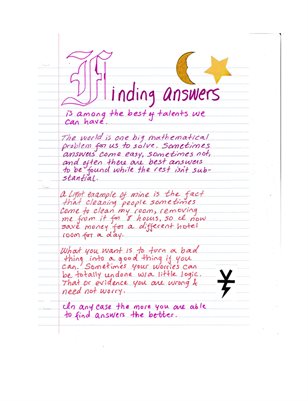 Finding answers
is among the best of talents we
can have.
The world is one big mathematical
problem for us to solve. Sometimes
answers come easy, sometimes not,
and often there are best answers
to be found while the rest isn't sub-
stantial.
A light example of mine is the fact
that cleaning people sometimes
come to clean my room, removing
me from it for 8 hours, so I now
save money for a different hotel
room for a day.
What you want is to turn a bad
thing into a good thing if you
can. Sometimes your worries can
be totally undone via a little logic.
That or evidence you are wrong &
need not worry.
In any case the more you are able
to find answers the better.